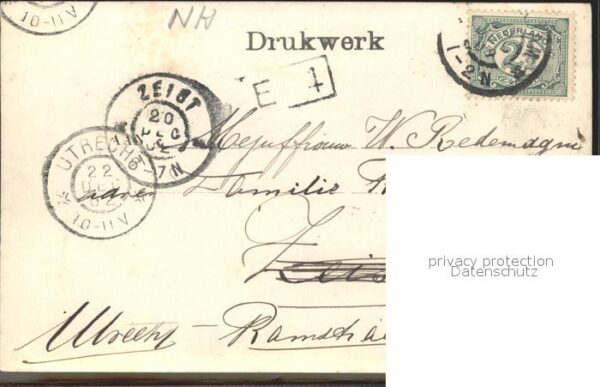 10-11V
NH
Drukwerk
NEDERLAND
2½
1-2N
E 4
ZEIST
20
DEC
7N
UTRECHT
22
DEC
02
10-11V
Mejuffrouw W.
Familie
Zeist
Utrecht - 
privacy protection
Datenschutz